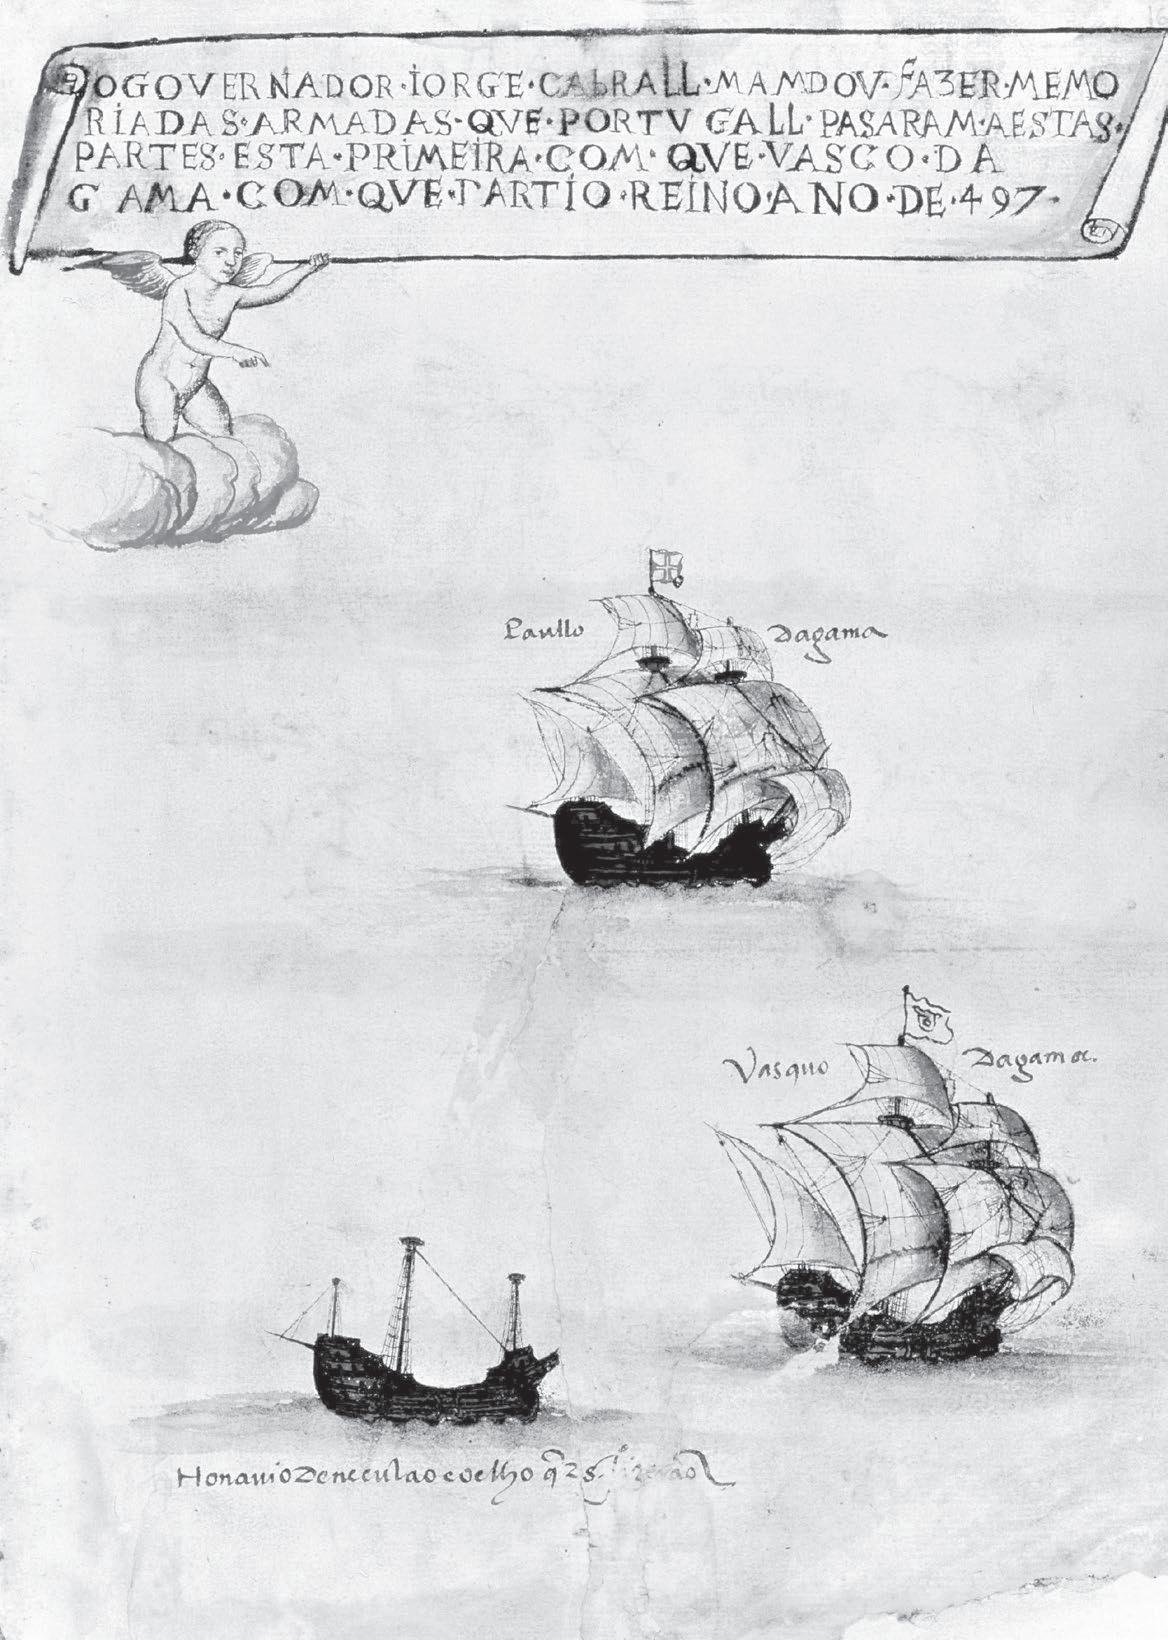 OGOVERNADOR·IORGE·CABRALL·MAMDOV·FAZER·MEMO
RIADAS·ARMADAS·QVE·PORTVGALL·PASARAM·AESTAS·
PARTES·ESTA·PRIMEIRA·COM·QVE·VASCO·DA
GAMA·COM·QVE·PARTIO·REINO·ANO·DE·497·
Paullo Dagama
Vasquo Dagama.
Honauio Deneculao coelho